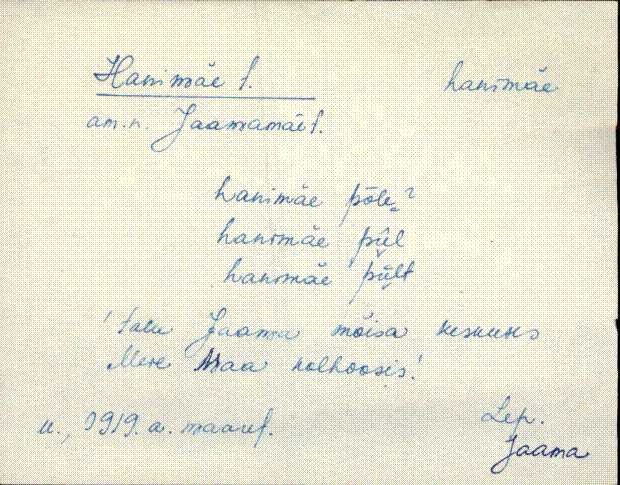 Hanimäe t. hanimäe
am.n. Jaamamäe t.
hanimäe põle?
hanimäe pūl
hanimäe pūlt
'talu Jaama mõisa keskuses
Mere Maa kolhoosis!
u., 1919. a. maaref. Lep.
Jaama